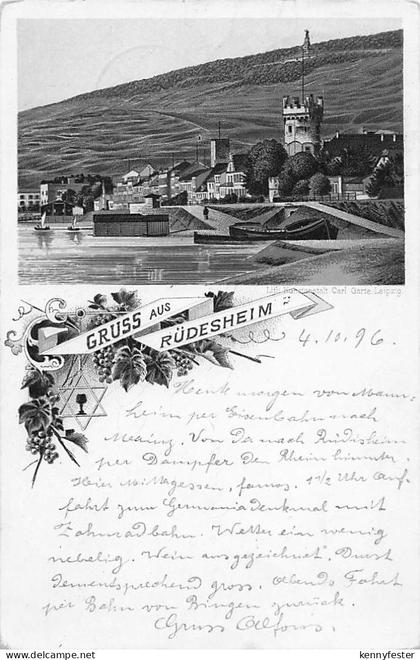 Lith. Kunstanstalt Carl Garte, Leipzig
GRUSS AUS
RÜDESHEIM
4.10.96.
Heute morgen von Mann-
heim per Eisenbahn nach
Mainz. Von da nach Rüdesheim
per Dampfer den Rhein hinunter.
Hier Mittagessen, famos. 1 1/2 Uhr Auf-
fahrt zum Germaniadenkmal mit
Zahnradbahn. Wetter ein wenig
nebelig. Wein ausgezeichnet. Durst
dementsprechend gross. Abends Fahrt
per Bahn von Bingen zurück.
Gruss Alfons.
kennyfester